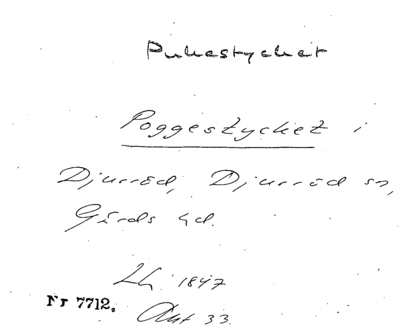 Puhestychet
Poggestycket i
Djurröd, Djurröd sn,
Gärds hd.
Lh. 1847
Nr 7712. Akt 33.